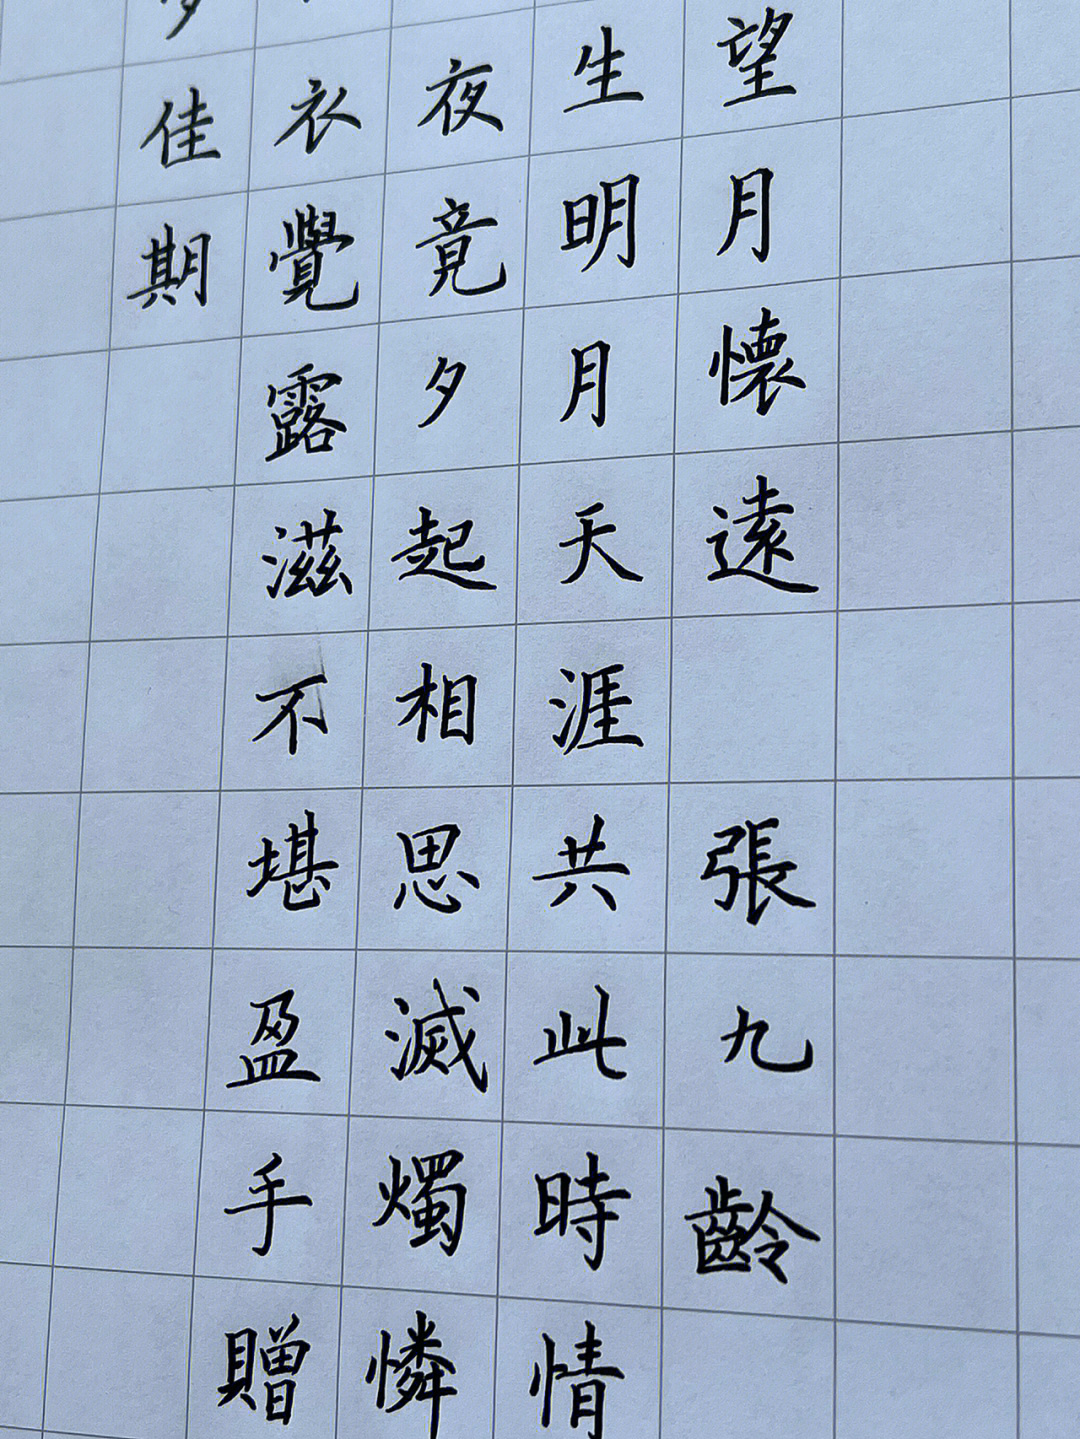 望月懐遠 張九齡
生明月天涯共此時情
夜竟夕起相思滅燭憐
衣覺露滋不堪盈手贈
佳期